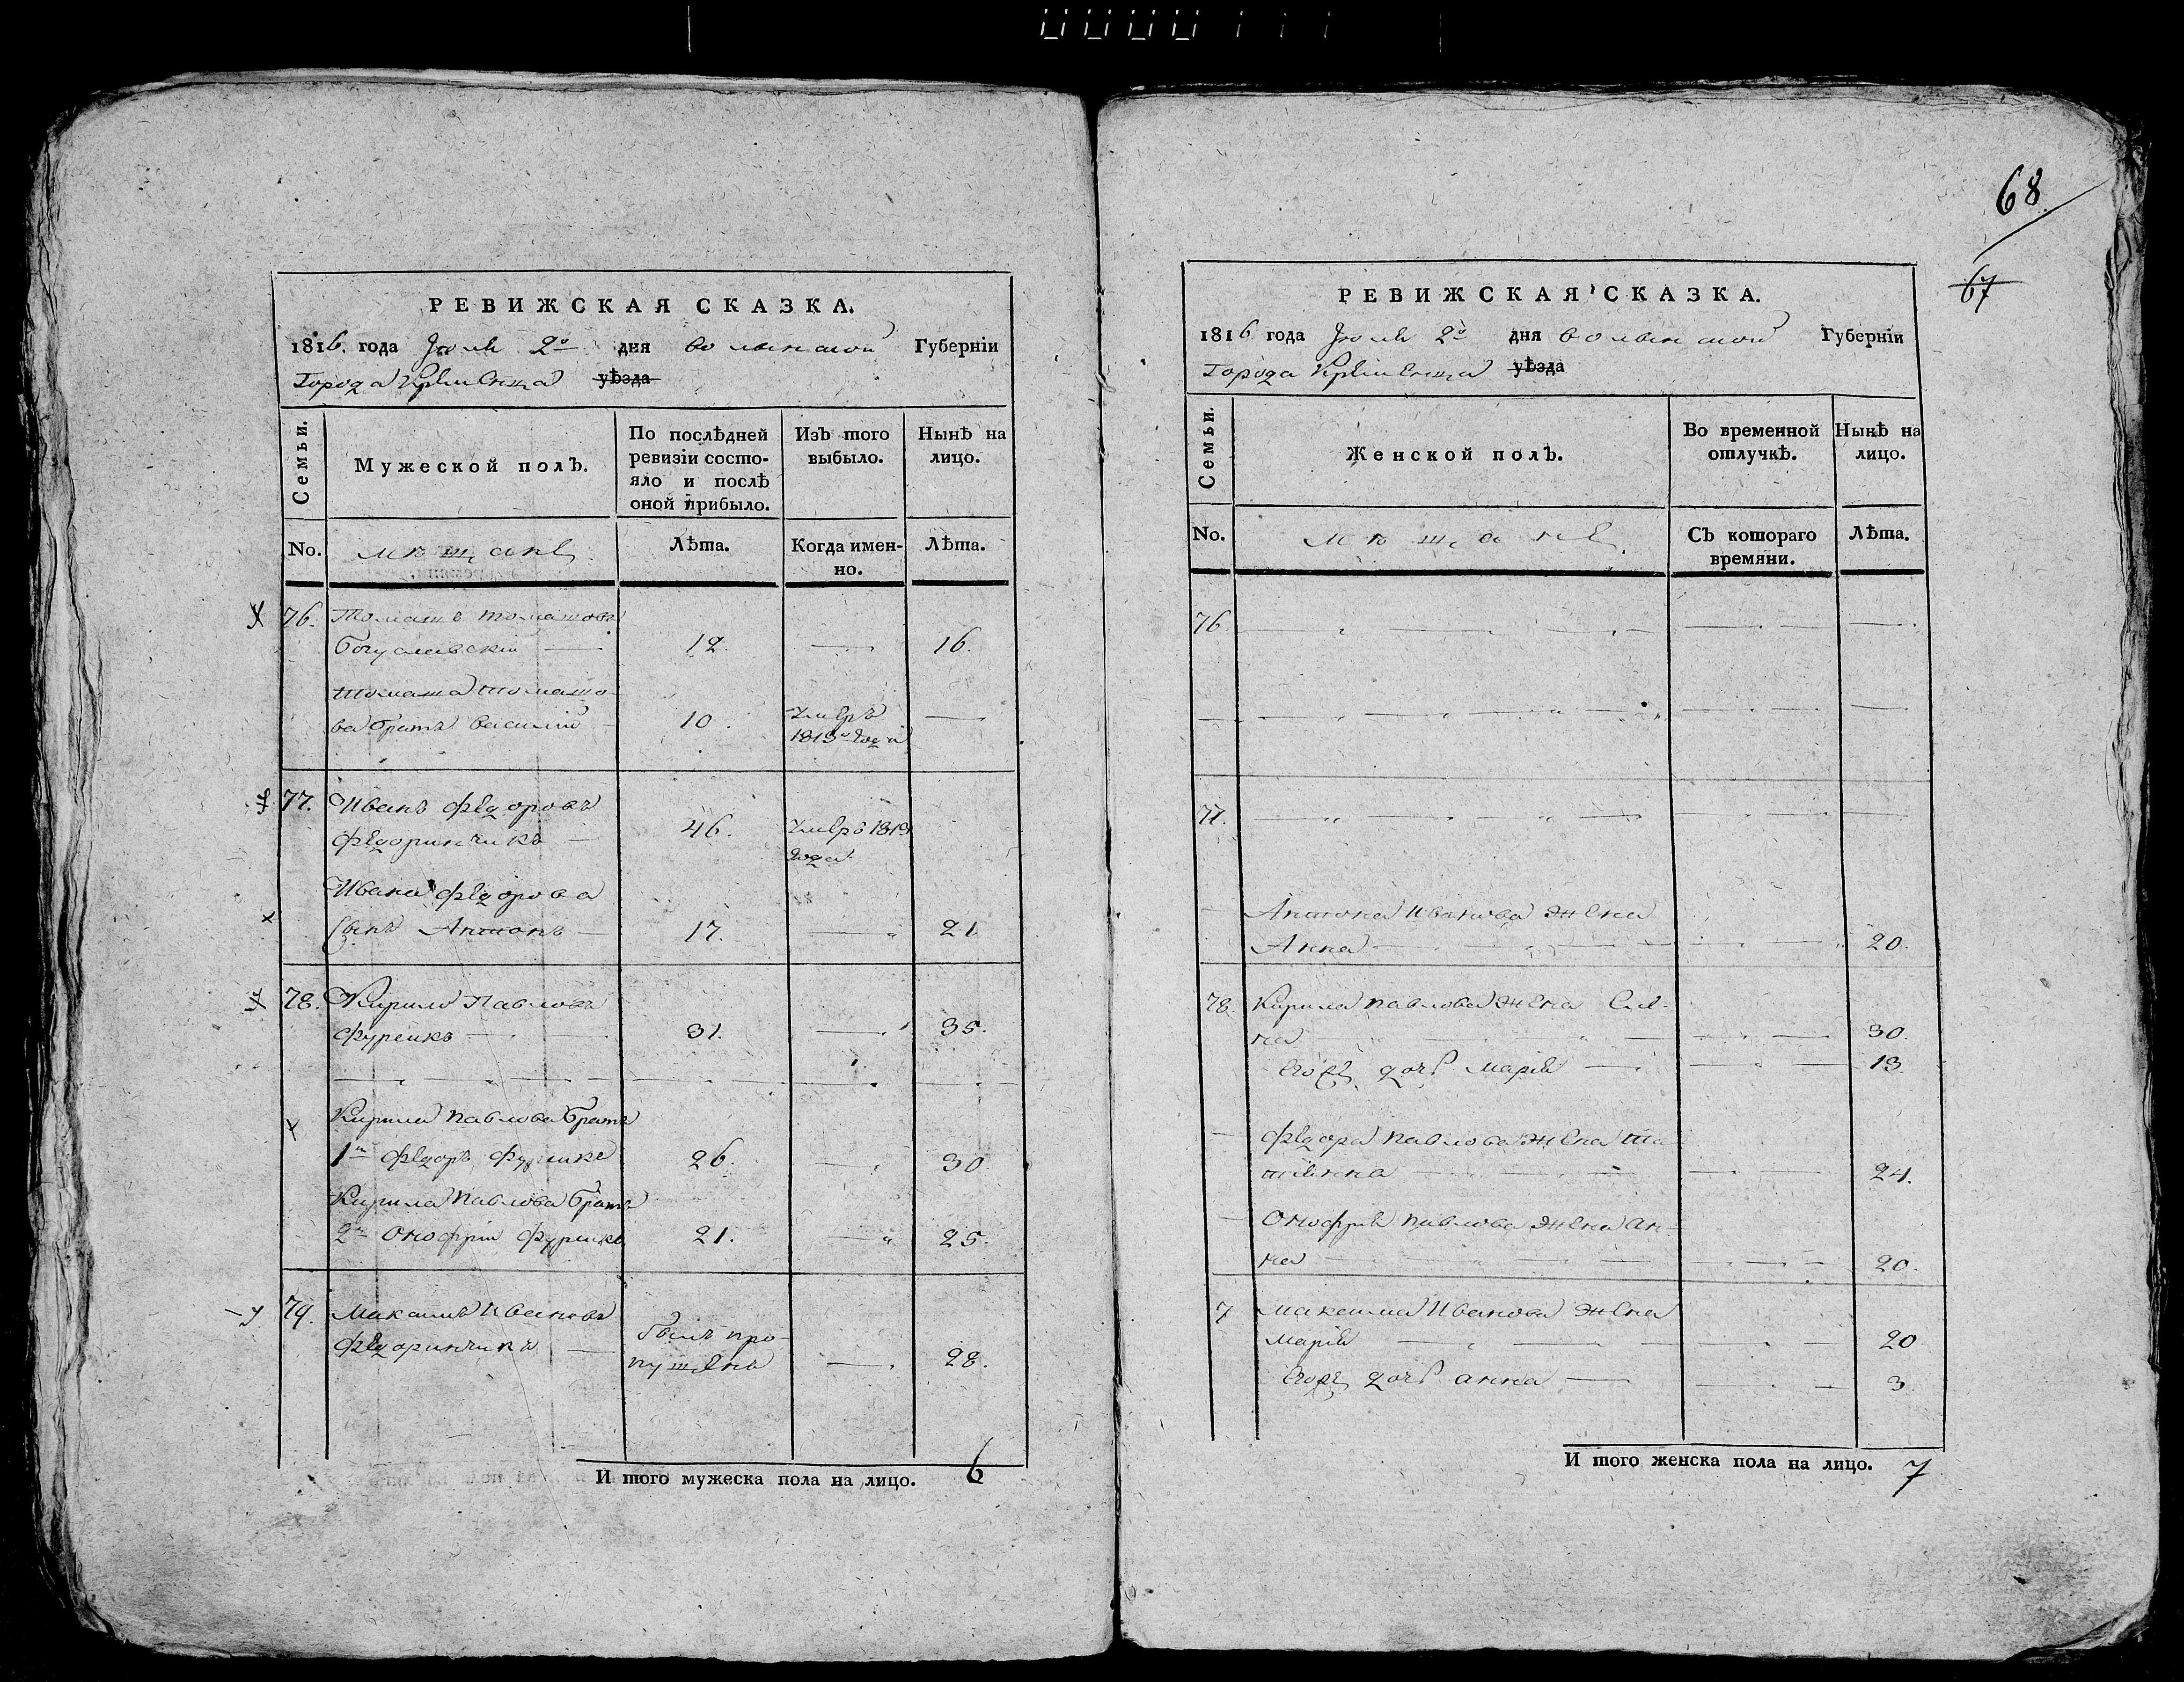 РЕВИЖСКАЯ СКАЗКА.
1816. года Июля 2го дня волынской Губерніи
Города Кременца уѣзда
Семьи.
Мужеской полъ.
По послѣдней ревизіи состо-
яло и послѣ
оной прибыло.
Изъ того
выбыло.
Нынѣ на
лицо.
No.
мѣщане
Лѣта.
Когда имен-
но.
Лѣта.
76. Томашъ томашовъ
Богуславскій 12. 16.
томаша томашо-
ва братъ василій 10. Умеръ
1813го года
77. Иванъ Федоровъ
федоринчикъ 46. Умеръ 1813
года
Ивана федорова
Сынъ Антонъ 17. 21
78. Кирило Павловъ
31. 35.
Кирила павлова братъ
1й федоръ 26. 30
Кирила павлова братъ
2й Онофрій 21. 25.
79. Максимъ Ивановъ
федоринчикъ былъ про-
пущенъ 28.
И того мужеска пола на лицо. 6
68
67
РЕВИЖСКАЯ СКАЗКА.
1816 года Июля 2го дня волынской Губерніи
Города Кременца уѣзда
Семьи.
Женской полъ.
Во временной
отлучкѣ.
Нынѣ на
лицо.
No.
мѣщане
Съ котораго
времяни.
Лѣта.
76
77.
Антона Иванова жена
Анна 20.
78. Кирила павлова жена
на 30.
Его дочь марія 13.
федора павлова жена та
тіянна 24.
Онофрія павлова жена ан-
на 20.
7 максима Иванова жена
марія 20
дочь анна 3
И того женска пола на лицо. 7